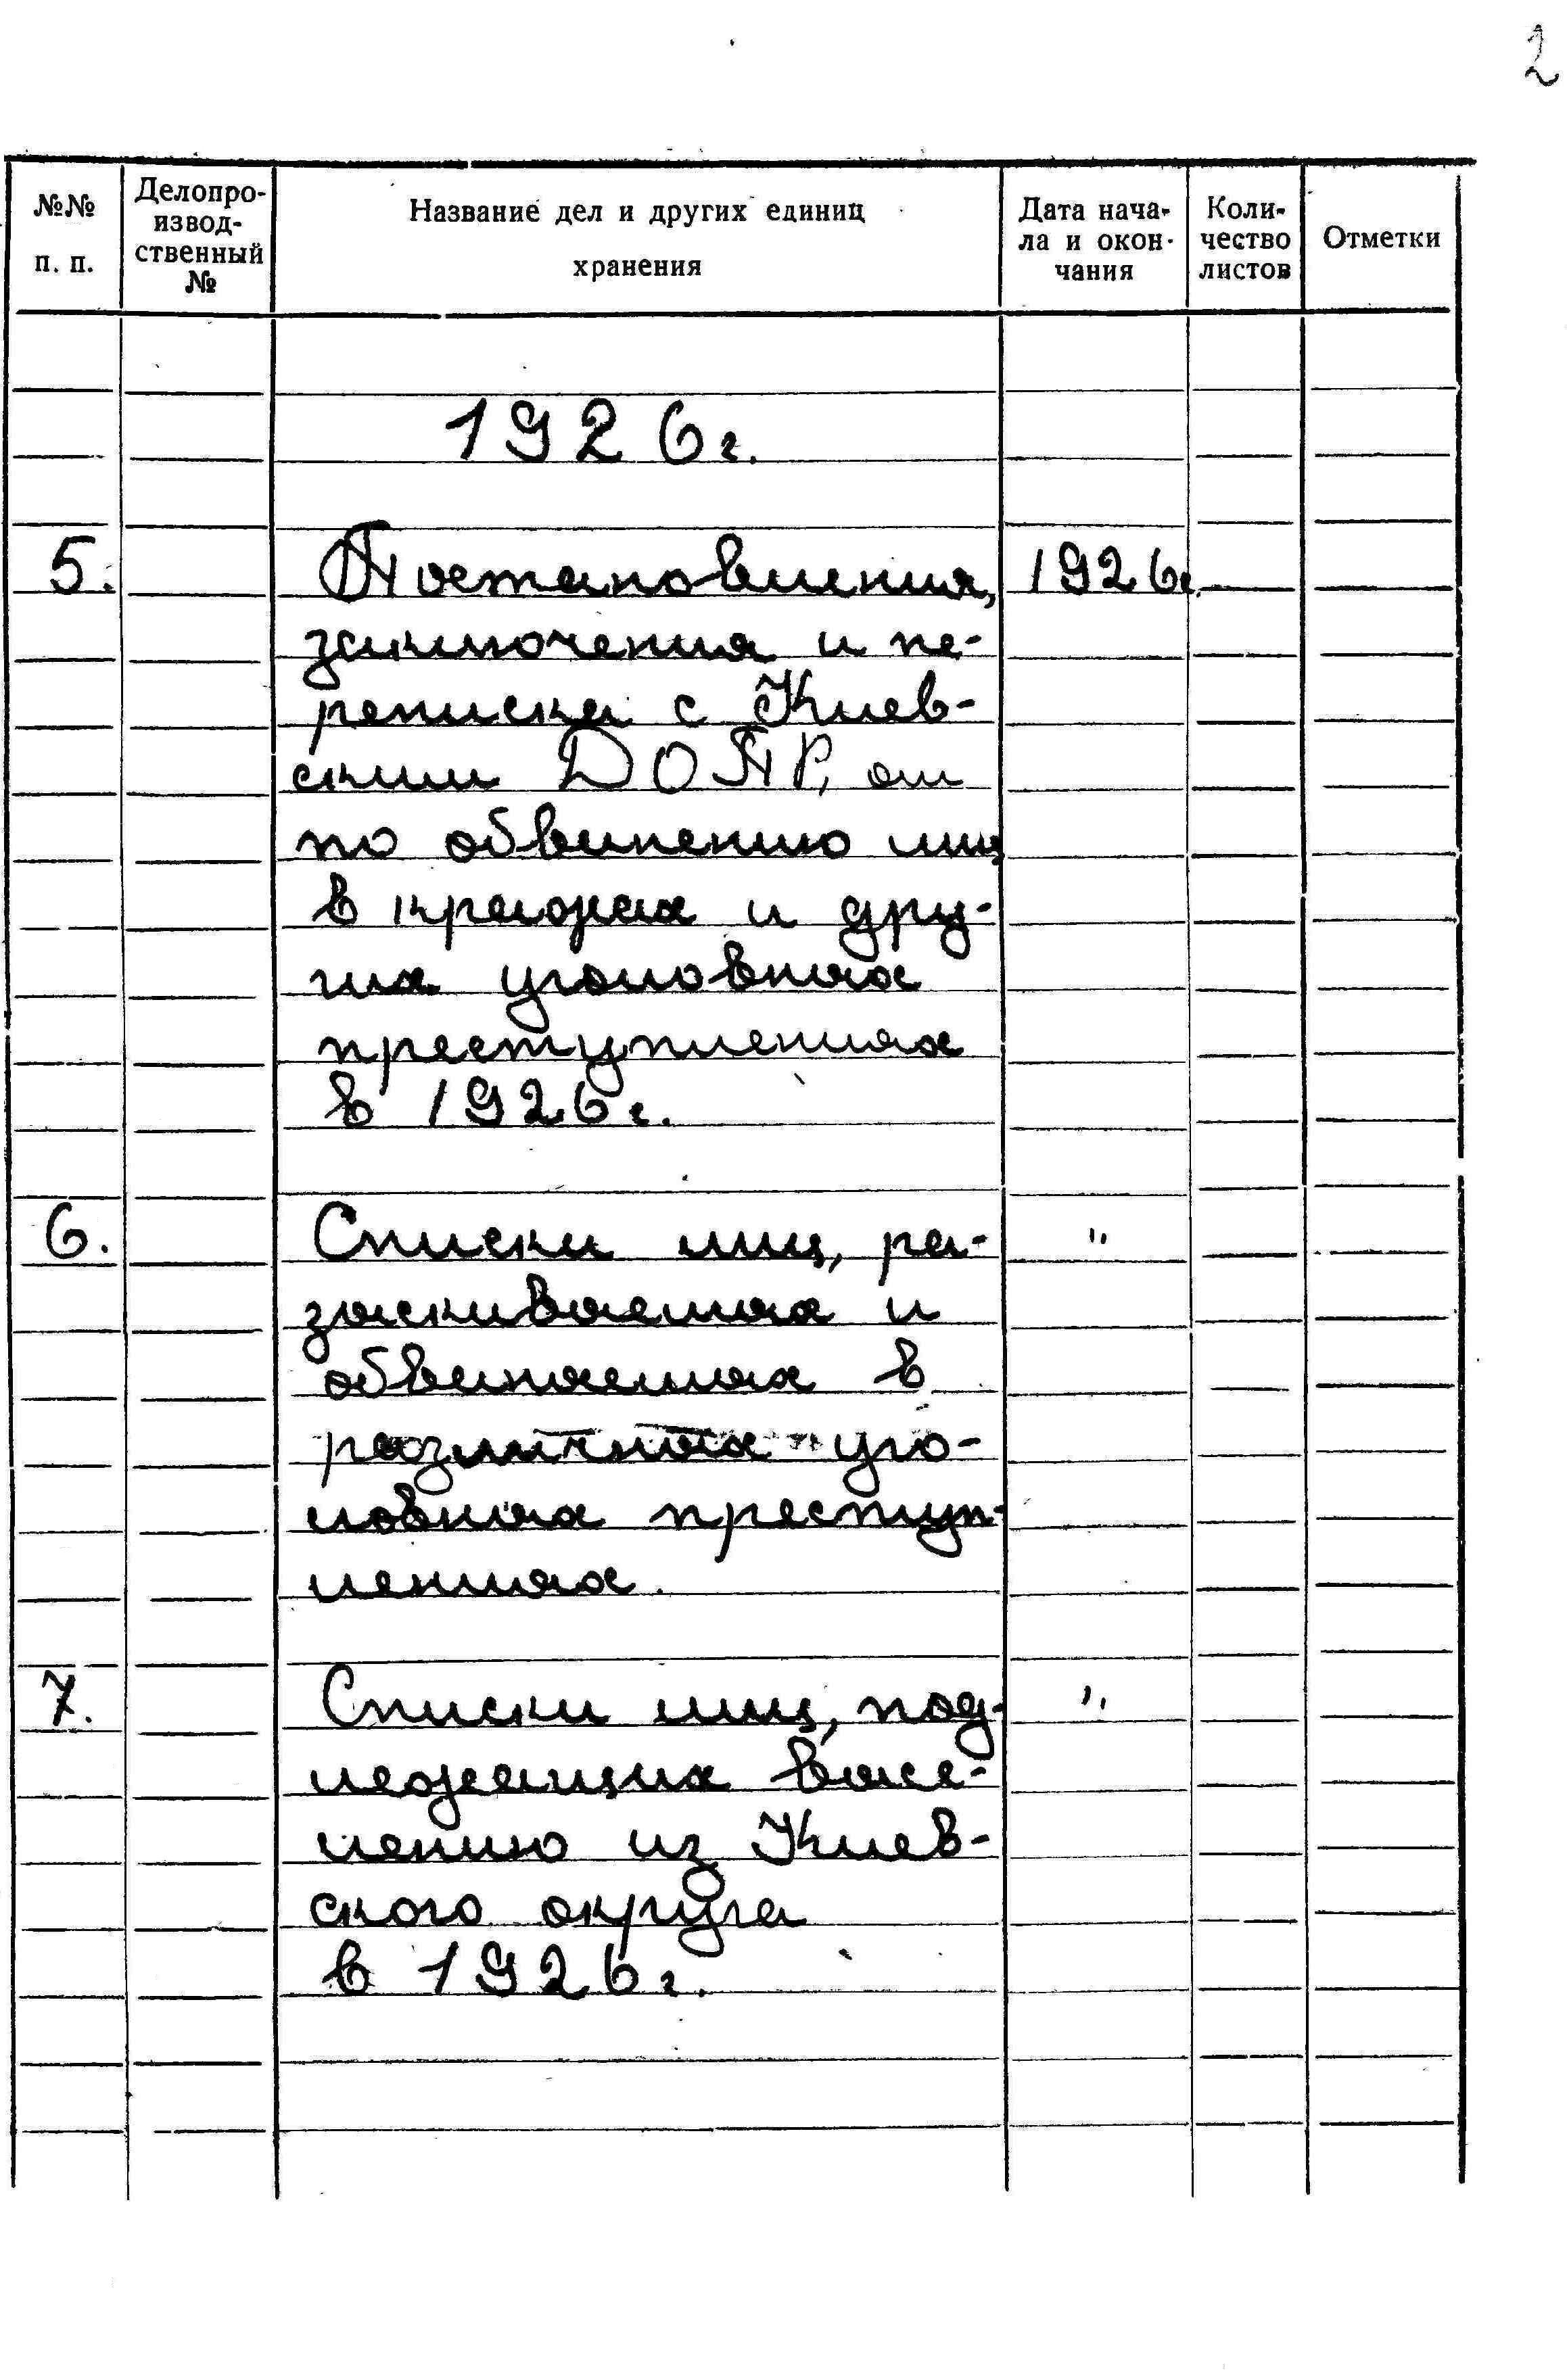 2
№№ п. п.
Делопро-
извод-
ственный
№
Название дел и других единиц
хранения
Дата нача-
ла и окон-
чания
Коли-
чество
листов
Отметки
1926г.
5. Постановления, 1926г.
заключения и пе-
реписка с Киев-
ским ДОПР,
по обвинению лиц
в кражах и дру-
гих уголовных
преступлениях
в 1926г.
6. Списки лиц, ра- "
зыскиваемых и
обвиняемых в
различных уго-
ловных преступ-
лениях.
7. Списки лиц, под- "
лежащих высе-
лению из Киев-
ского округа
в 1926г.